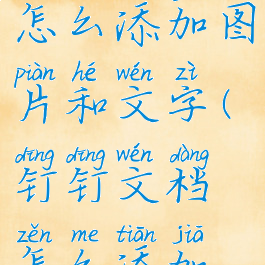 怎么添加图
piàn hé wén zì
片和文字(
dīng dīng wén dàng
钉钉文档
zěn me tiān jiā
怎么添加